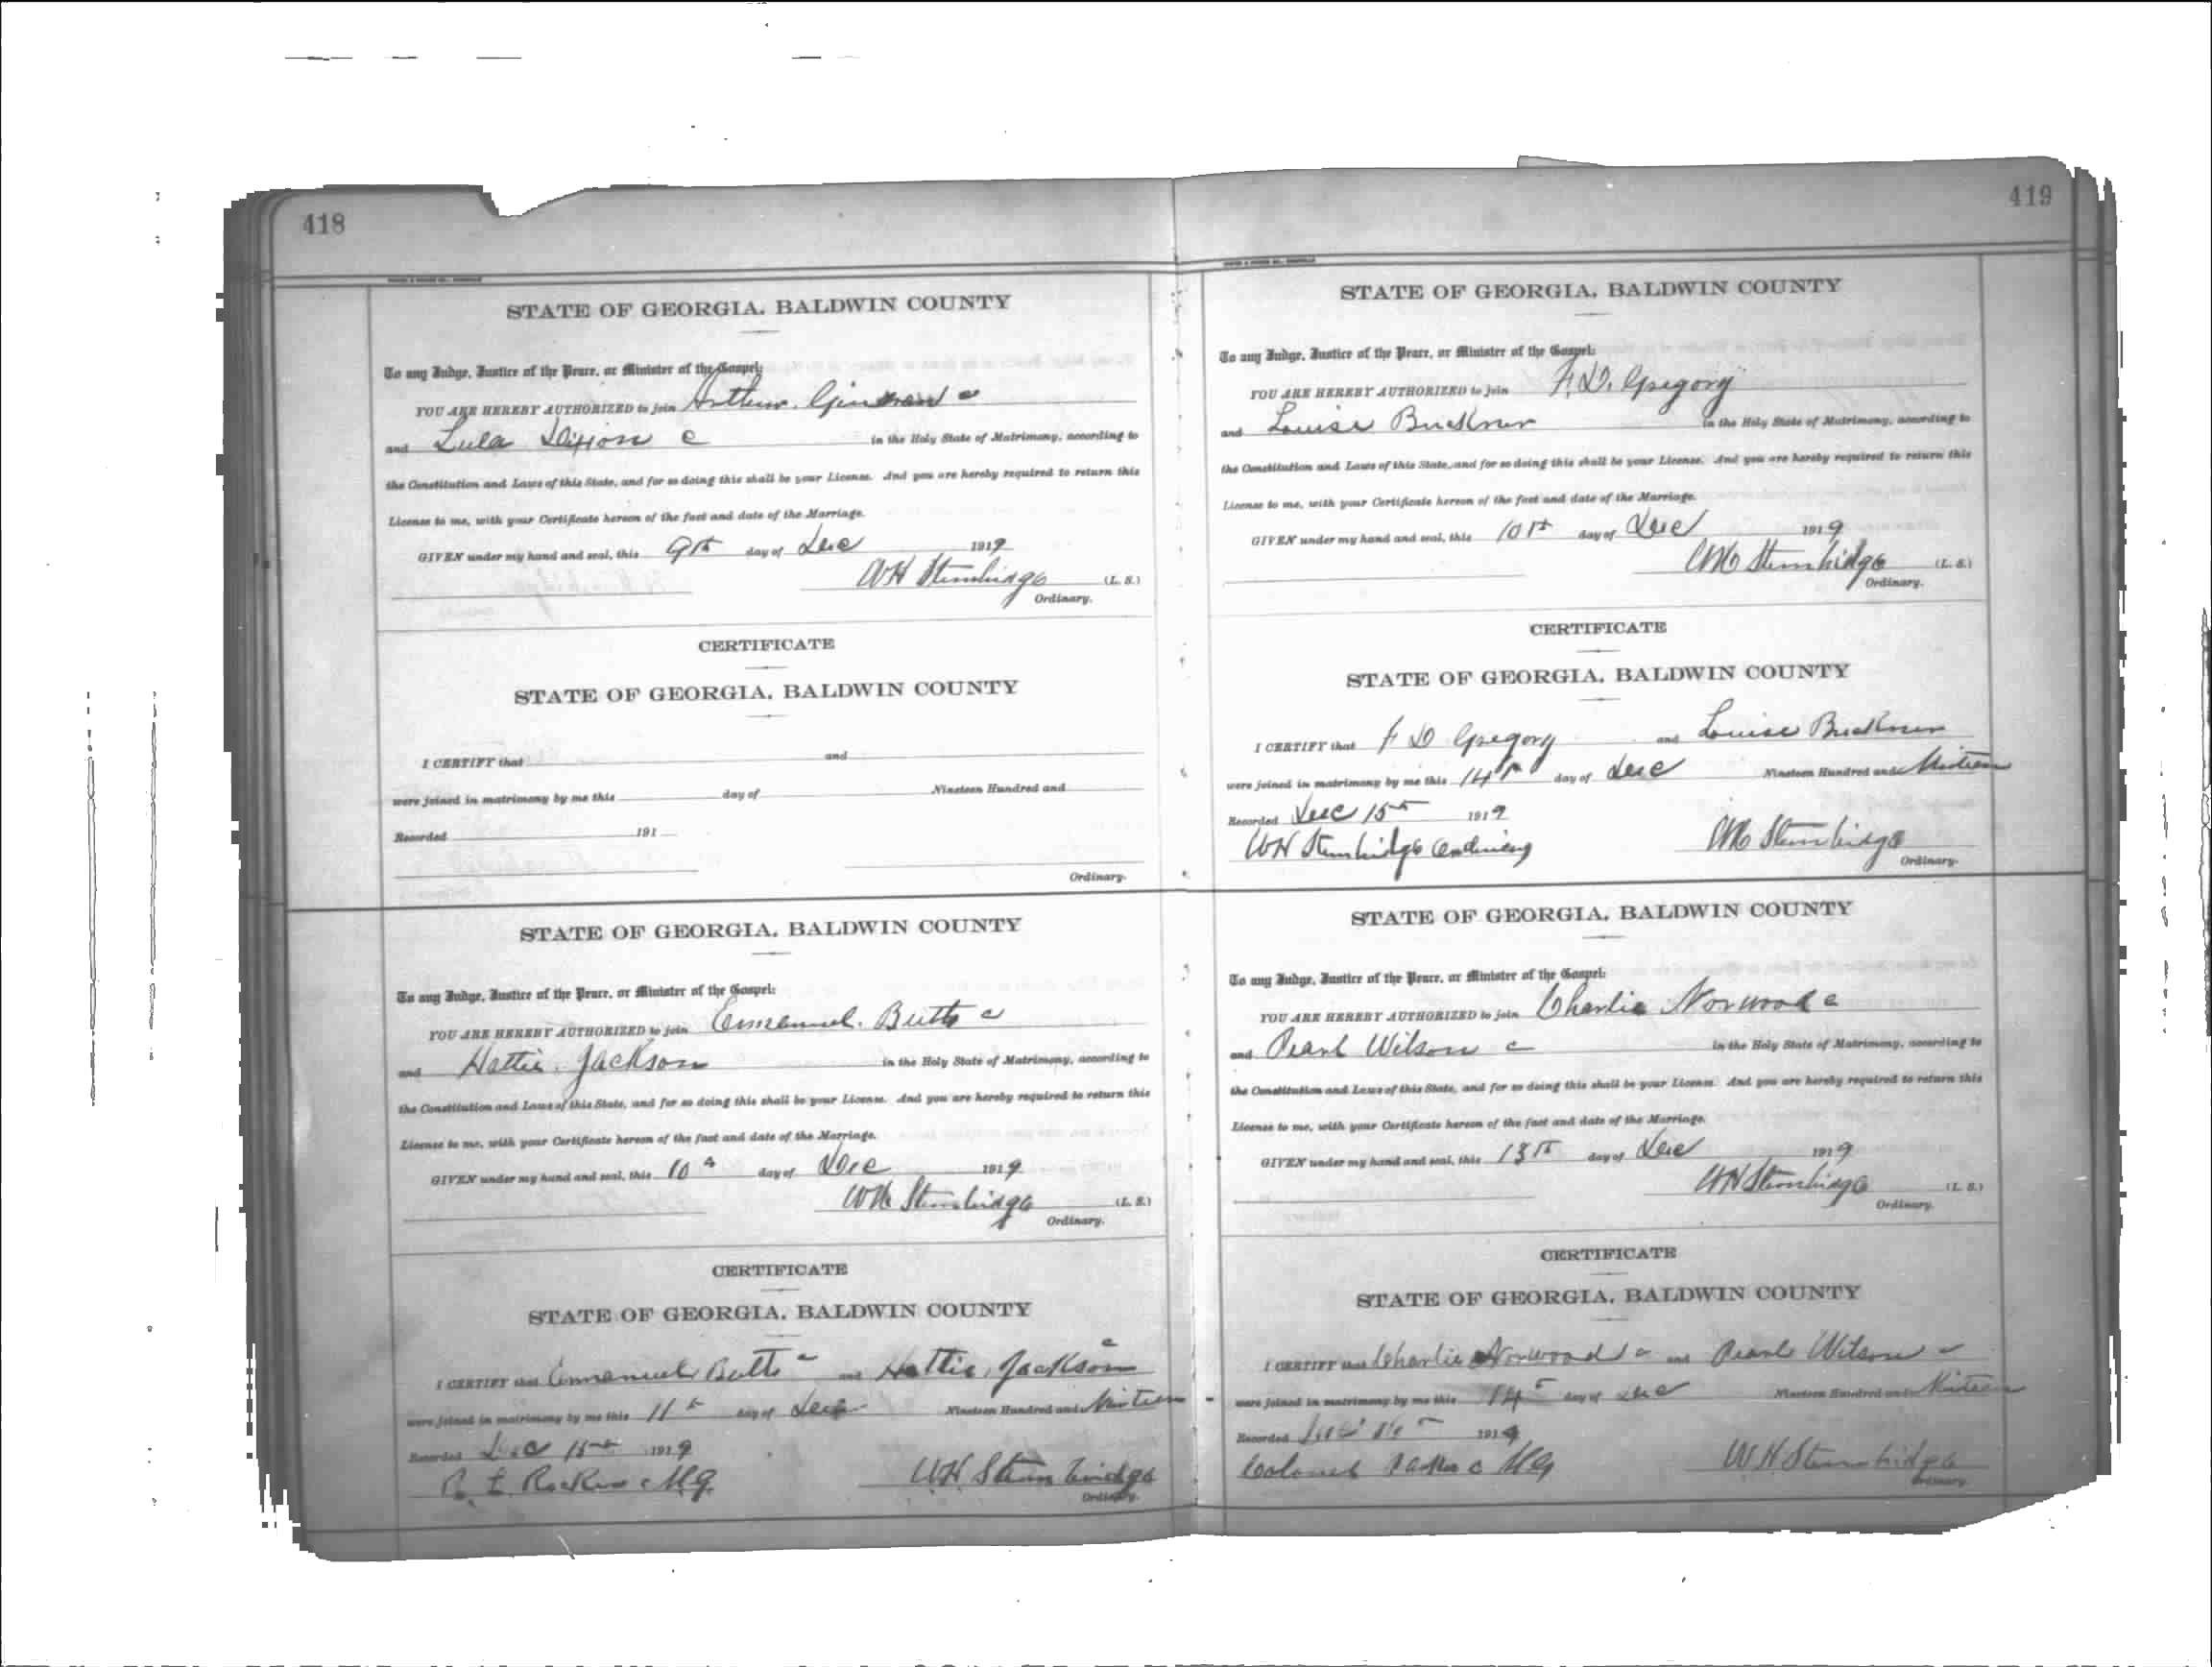 418
STATE OF GEORGIA, BALDWIN COUNTY
To any Judge, Justice of the Peace, or Minister of the Gospel:
YOU ARE HEREBY AUTHORIZED to join Arthur c
and Lula Dixon c in the Holy State of Matrimony, according to
the Constitution and Laws of this State, and for so doing this shall be your License. And you are hereby required to return this
License to me, with your Certificate hereon of the fact and date of the Marriage.
GIVEN under my hand and seal, this 9th day of Dec 1919
WH Stembridge (L. S.)
Ordinary.
CERTIFICATE
STATE OF GEORGIA, BALDWIN COUNTY
I CERTIFY that and
were joined in matrimony by me this day of Nineteen Hundred and
Recorded 191
Ordinary.
STATE OF GEORGIA, BALDWIN COUNTY
To any Judge, Justice of the Peace, or Minister of the Gospel:
YOU ARE HEREBY AUTHORIZED to join Emanuel Butts c
and Hattie Jackson in the Holy State of Matrimony, according to
the Constitution and Laws of this State, and for so doing this shall be your License. And you are hereby required to return this
License to me, with your Certificate hereon of the fact and date of the Marriage.
GIVEN under my hand and seal, this 10 day of Dec 1919
WH Stembridge (L. S.)
Ordinary.
CERTIFICATE
STATE OF GEORGIA, BALDWIN COUNTY
I CERTIFY that Emanuel Butts c and Hattie Jackson c
were joined in matrimony by me this 11th day of Dec Nineteen Hundred and Ninteen
Recorded Dec 15th 1919
M.G. WH Stembridge
Ordinary.
419
STATE OF GEORGIA, BALDWIN COUNTY
To any Judge, Justice of the Peace, or Minister of the Gospel:
YOU ARE HEREBY AUTHORIZED to join F. D. Gregory
and Louise Buckner in the Holy State of Matrimony, according to
the Constitution and Laws of this State, and for so doing this shall be your License. And you are hereby required to return this
License to me, with your Certificate hereon of the fact and date of the Marriage.
GIVEN under my hand and seal, this 10th day of Dec 1919
WH Stembridge (L. S.)
Ordinary.
CERTIFICATE
STATE OF GEORGIA, BALDWIN COUNTY
I CERTIFY that F D Gregory and Louise Buckner
were joined in matrimony by me this 14th day of Dec Nineteen Hundred and Ninteen
Recorded Dec 15th 1919
WH Stembridge Ordinary WH Stembridge
Ordinary.
STATE OF GEORGIA, BALDWIN COUNTY
To any Judge, Justice of the Peace, or Minister of the Gospel:
YOU ARE HEREBY AUTHORIZED to join Charlie Norwood c
and Pearl Wilson c in the Holy State of Matrimony, according to
the Constitution and Laws of this State, and for so doing this shall be your License. And you are hereby required to return this
License to me, with your Certificate hereon of the fact and date of the Marriage.
GIVEN under my hand and seal, this 13th day of Dec 1919
WH Stembridge (L. S.)
Ordinary.
CERTIFICATE
STATE OF GEORGIA, BALDWIN COUNTY
I CERTIFY that Charlie Norwood c and Pearl Wilson c
were joined in matrimony by me this 14 day of Dec Nineteen Hundred and Ninteen
Recorded 1919
M.G. W.H Stembridge
Ordinary.